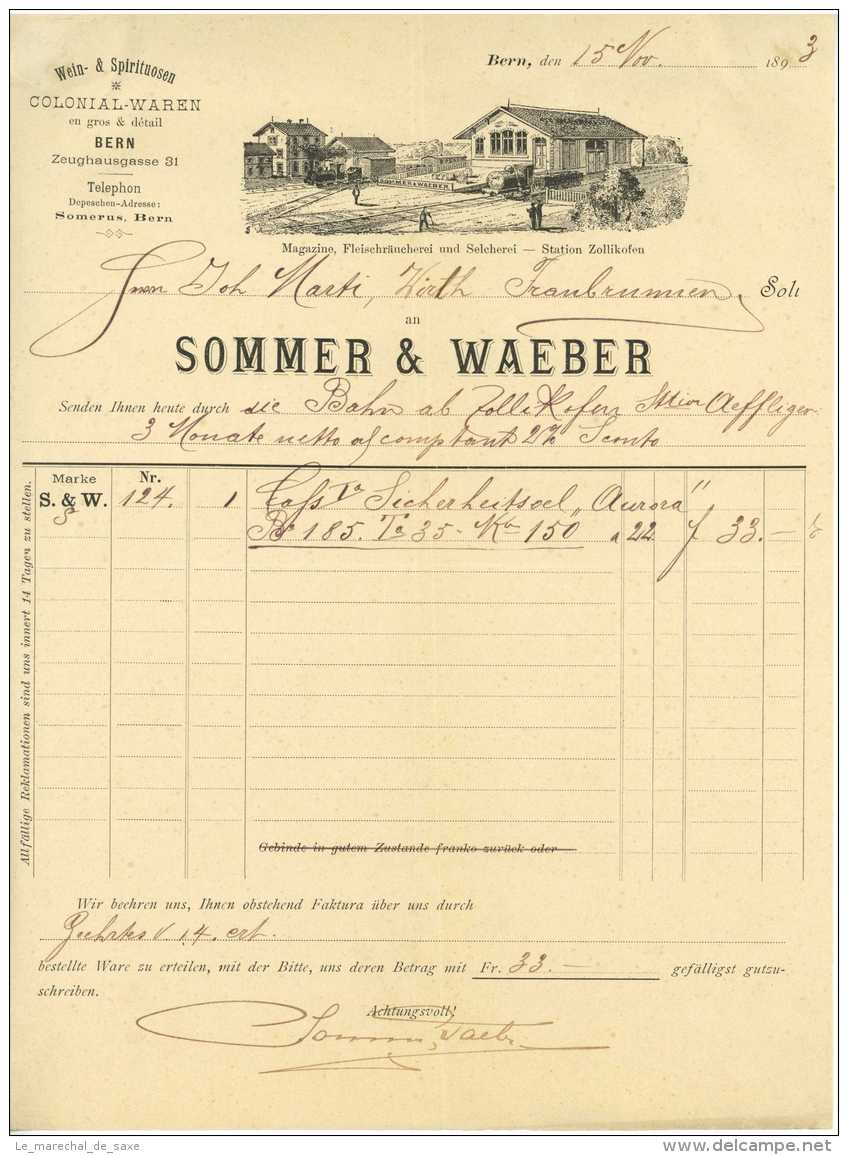 Wein- & Spirituosen
COLONIAL-WAREN
en gros & détail
BERN
Zeughausgasse 31
Telephon
Depeschen-Adresse:
Somerus, Bern
Bern, den 15 Nov. 1893
SOMMER & WAEBER
Magazine, Fleischräucherei und Selcherei — Station Zollikofen
Herrn Joh Marti, Wirth Fraubrunnen, Soll
an
SOMMER & WAEBER
Senden Ihnen heute durch die Bahn ab Zollikofen Station Aeffligen
3 Monate netto a/ comptant 2% Sconto
Marke Nr.
S. & W. 124. 1 Fass Ia Sicherheitsoel „Aurora"
Bo 185. Ta 35 - No 150 a 22 f 33.—
Allfällige Reklamationen sind uns innert 14 Tagen zu stellen.
Gebinde in gutem Zustande franko zurück oder
Wir beehren uns, Ihnen obstehend Faktura über uns durch
Geehrtes v. 14. crt.
bestellte Ware zu erteilen, mit der Bitte, uns deren Betrag mit Fr. 33.— gefälligst gutzu-
schreiben.
Achtungsvoll!
Sommer & Waeber
Le_marechal_de_saxe
www.delcampe.net